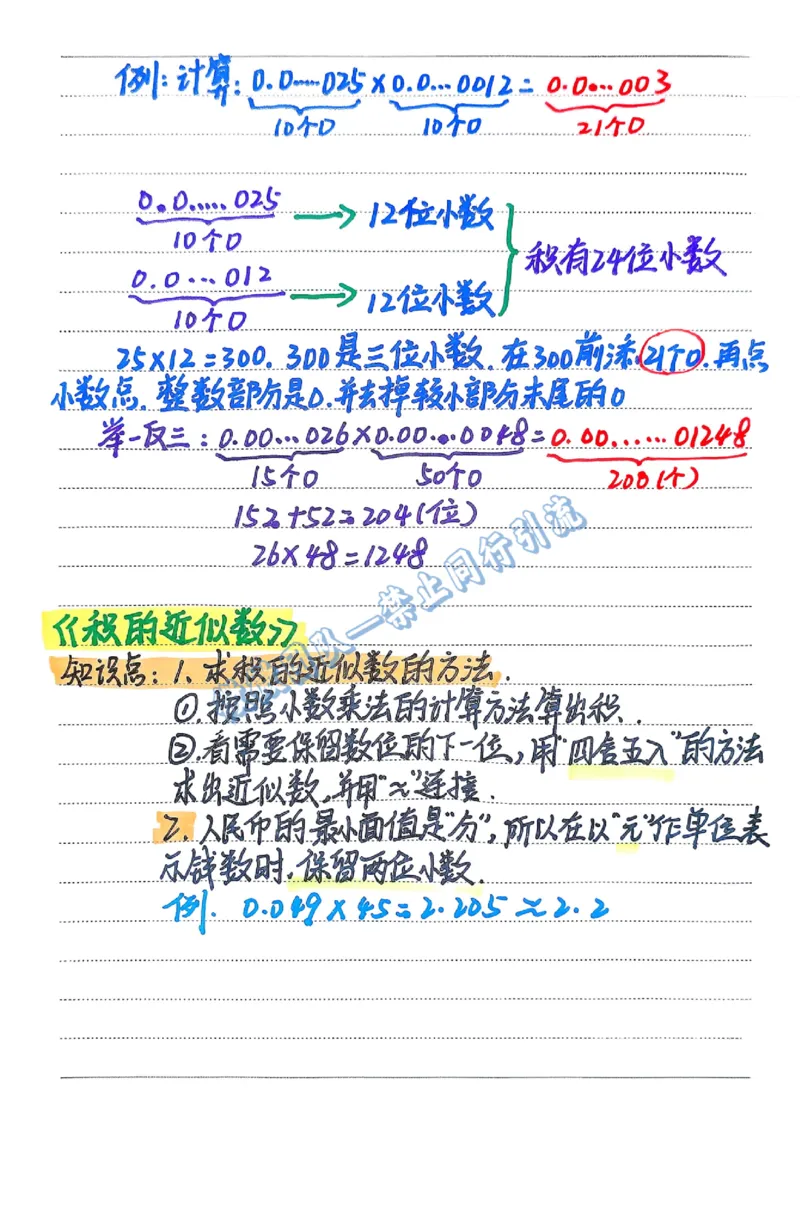 例:计算: 0.0……025×0.0…0012=0.0…003
10个0 10个0 21个0
0.0.....025 → 12位小数
10个0
积有24位小数
0.0…012 → 12位小数
10个0
25×12=300. 300是三位小数. 在300前添21个0. 再点
小数点. 整数部分是0. 并去掉较小部分末尾的0
举一反三: 0.00…026×0.00…0048=0.00......01248
15个0 50个0 200(个)
152+52=204(位)
26×48=1248
团队—禁止同行引流
《积的近似数》
知识点: 1、求积的近似数的方法.
①.按照小数乘法的计算方法算出积.
②.看需要保留数位的下一位, 用"四舍五入"的方法
求出近似数, 并用"≈"连接.
2. 人民币的最小面值是"分", 所以在以"元"作单位表
示钱数时, 保留两位小数.
例. 0.049×45=2.205≈2.2